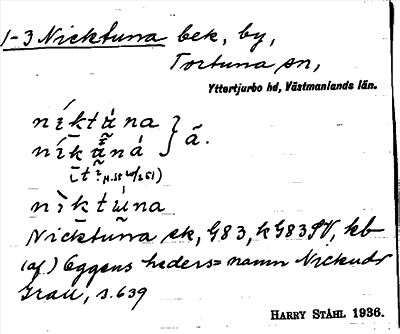 1-3 Nicktuna bek, by,
Tortuna sn,
Yttertjurbo hd, Västmanlands län.
níktùna } ā.
níkǜná
nìktúna
Nicktuna sk, G83, kG83SV, kb
(af.) Eggens heders=namn Nickudr
Grau, s.639
HARRY STÅHL 1936.